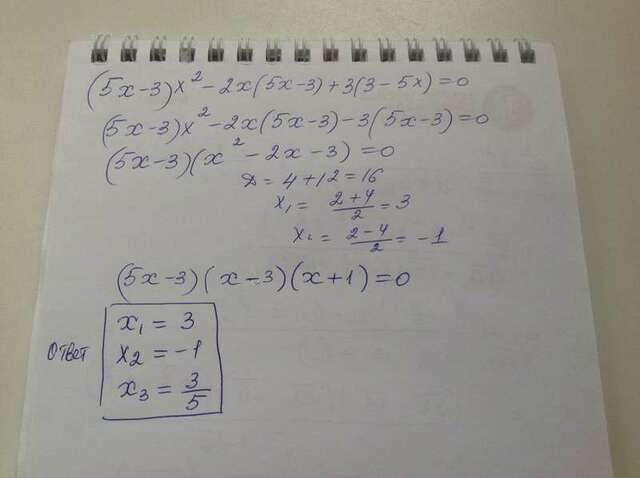 (5x-3)x² - 2x(5x-3) + 3(3-5x) = 0
(5x-3)x² - 2x(5x-3) - 3(5x-3) = 0
(5x-3)(x² - 2x - 3) = 0
D = 4 + 12 = 16
x₁ = (2+4)/2 = 3
x₂ = (2-4)/2 = -1
(5x-3)(x-3)(x+1) = 0
Ответ
x₁ = 3
x₂ = -1
x₃ = 3/5